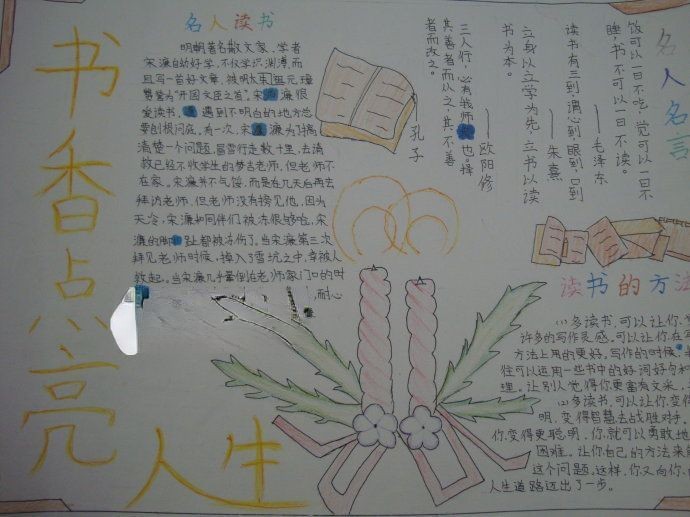 书香点亮
人生
名人读书
明朝著名散文家、学者
宋濂自幼好学,不仅学识渊博,而
且写一首好文章,被明太祖
誉为“开国文臣之首”。宋濂很
爱读书,遇到不明白的地方总
要刨根问底。有一次,宋濂为了搞
清楚一个问题,冒雪行走数十里,去请
教已经不收学生的梦吉老师,但老师不
在家。宋濂并不气馁,而是在几天后再去
拜访老师,但老师没有接见他。因为
天冷,宋濂和同伴们被冻得够呛,宋
濂的脚趾都被冻伤了。当宋濂第三次
拜见老师时候,掉入了雪坑之中,幸被人
救起。当宋濂几乎晕倒在老师家门口的时
耐心
名人名言
饭可以一日不吃,觉可以一日不
睡,书不可以一日不读。
——毛泽东
读书有三到,谓心到,眼到,口到
——朱熹
立身以立学为先,立书以读
书为本。
——欧阳修
三人行,必有我师也。择
其善者而从之,其不善
者而改之。
——孔子
读书的方法
(1)多读书,可以让你
许多的写作灵感。可以让你在写
方法上用的更好。写作的时候,
往可以运用一些书中的好词好句和
理。让别人觉得你更富有文采,
(2)多读书,可以让你变得
明,变得智慧去战胜对手。
你变得更聪明,你就可以勇敢地
困难。让你自己的方法来解
这个问题。这样,你又向你
人生道路迈出了一步。